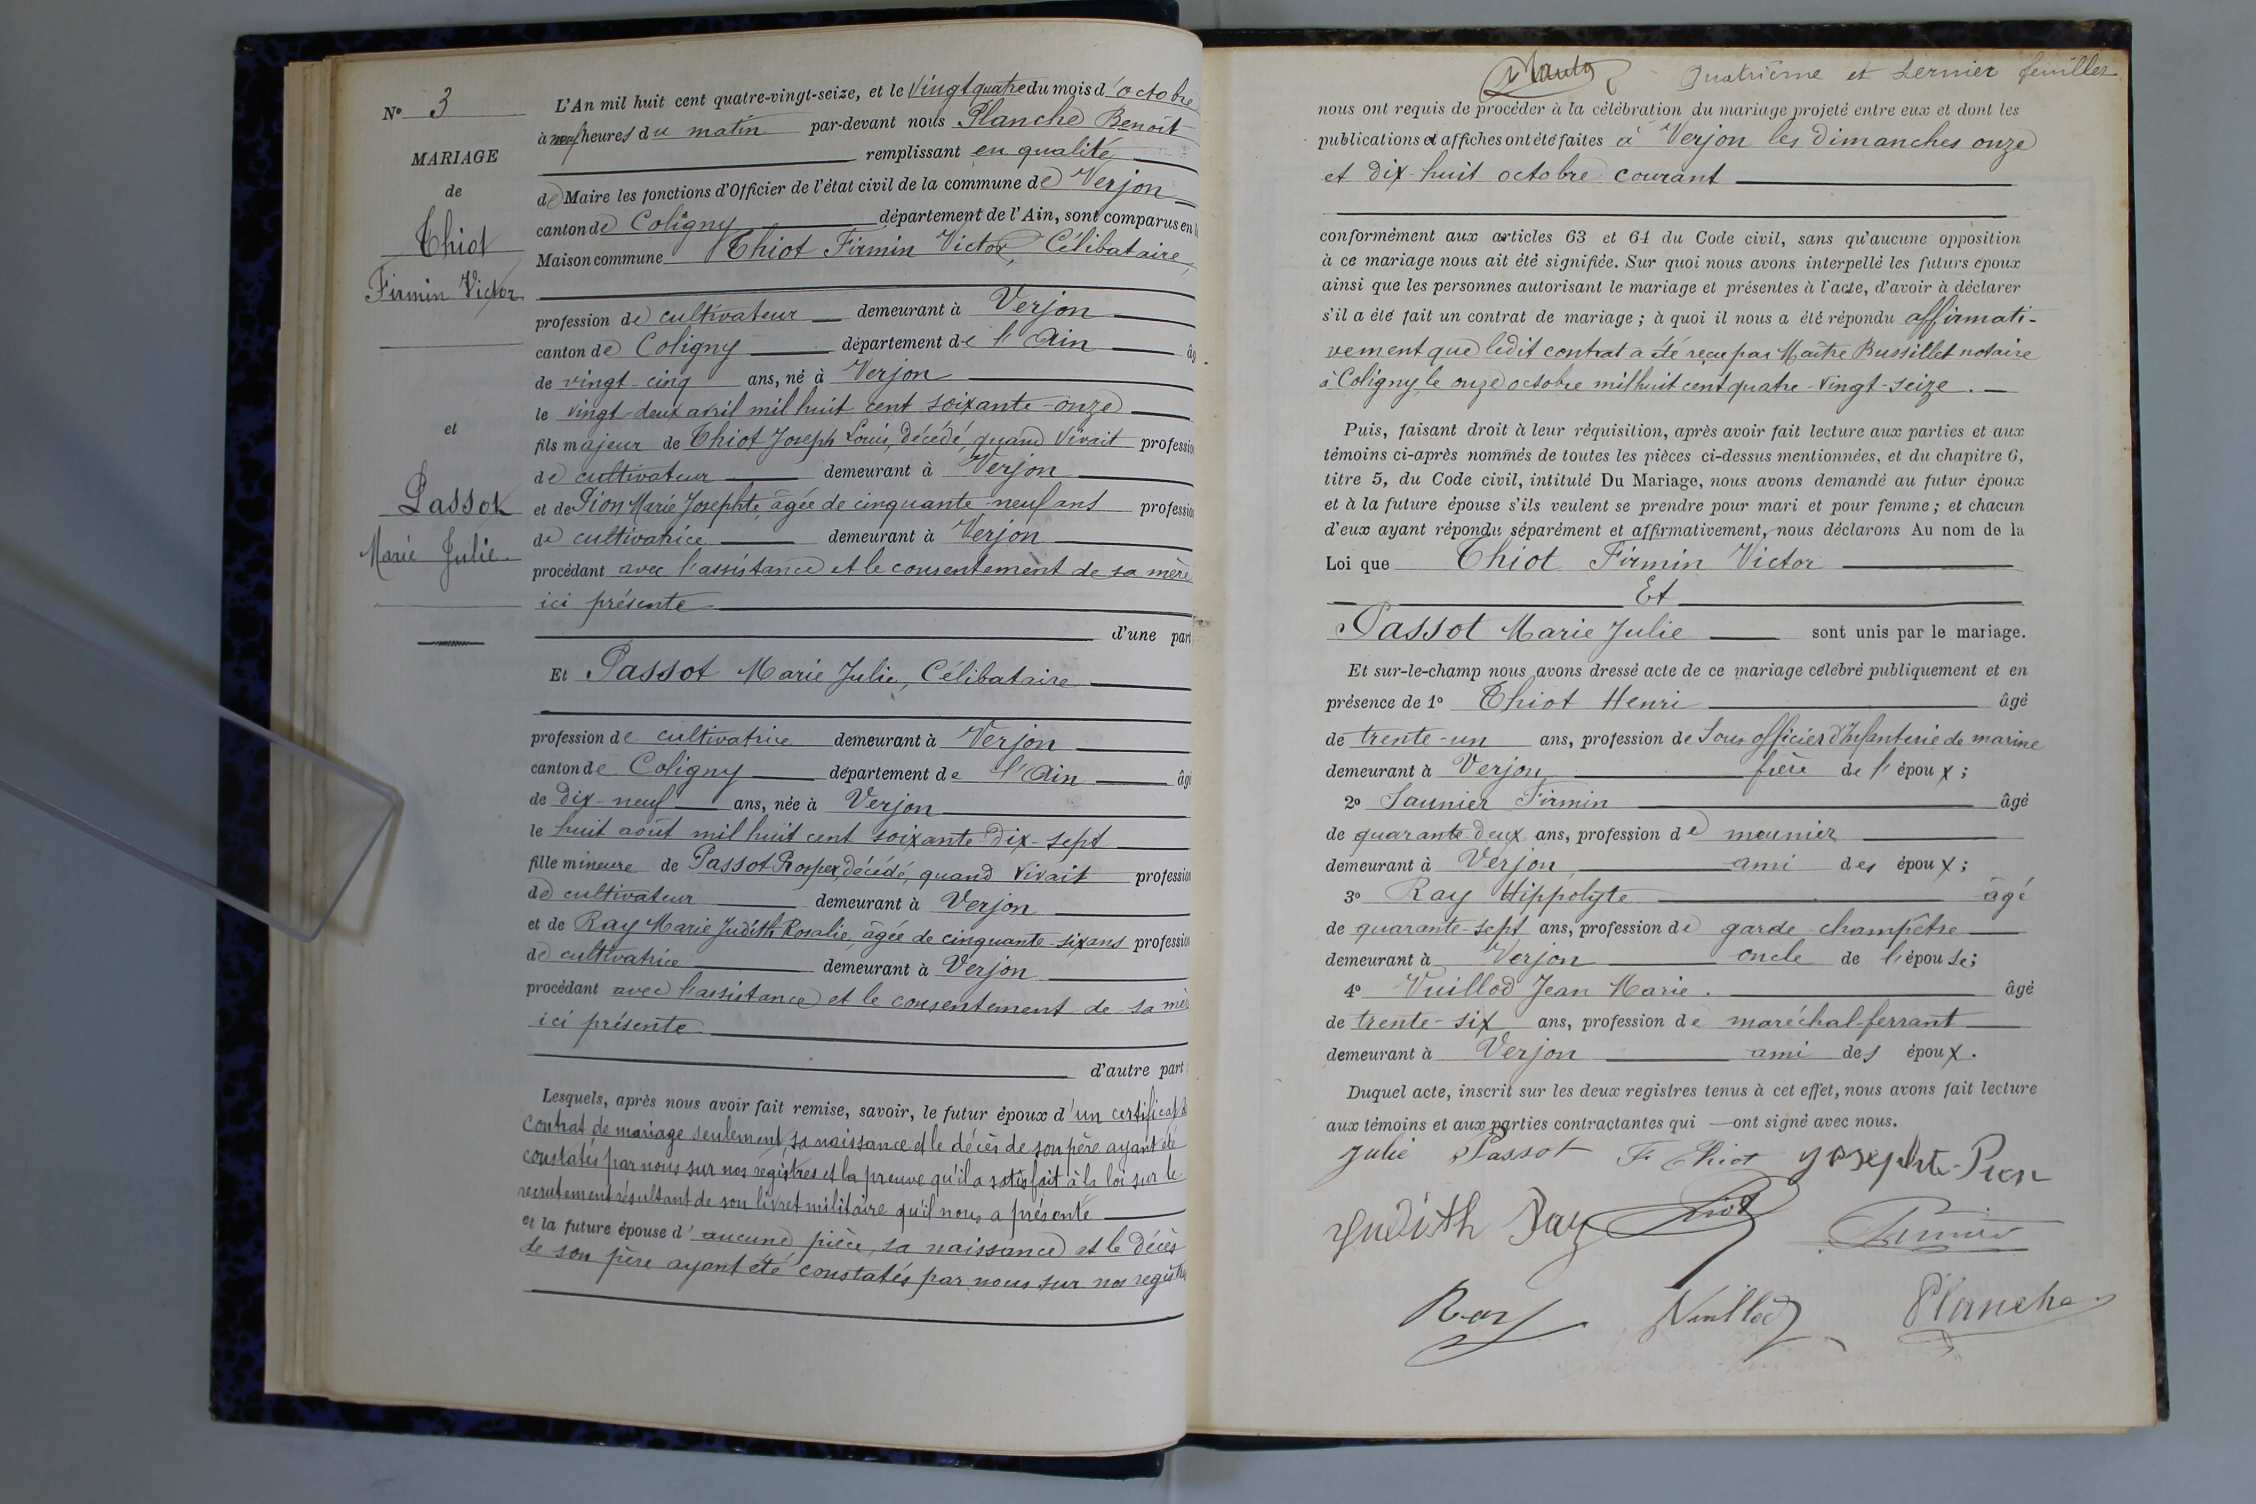 N° 3
MARIAGE
de
Thiot
Firmin Victor
et
Passot
Marie Julie
L'An mil huit cent quatre-vingt-seize, et le Vingt quatre du mois d'octobre
à neuf heures du matin par-devant nous Planche Benoît
remplissant en qualité
de Maire les fonctions d'Officier de l'état civil de la commune de Verjon
canton de Coligny département de l'Ain, sont comparus en la
Maison commune Thiot Firmin Victor, Célibataire,
profession de cultivateur demeurant à Verjon
canton de Coligny département de l'Ain âg
de vingt-cinq ans, né à Verjon
le vingt-deux avril mil huit cent soixante-onze
fils majeur de Thiot Joseph Louis, décédé, quand vivait profession
de cultivateur demeurant à Verjon
et de Pion Marie Josephte, âgée de cinquante-neuf ans profession
de cultivatrice demeurant à Verjon
procédant avec l'assistance et le consentement de sa mère
ici présente
d'une part
Et Passot Marie Julie, Célibataire
profession de cultivatrice demeurant à Verjon
canton de Coligny département de l'Ain âgé
de dix-neuf ans, née à Verjon
le huit août mil huit cent soixante-dix-sept
fille mineure de Passot Prosper, décédé, quand vivait profession
de cultivateur demeurant à Verjon
et de Ray Marie Judith Rosalie, âgée de cinquante-six ans profession
de cultivatrice demeurant à Verjon
procédant avec l'assistance et le consentement de sa mèr
ici présente
d'autre part
Lesquels, après nous avoir fait remise, savoir, le futur époux d'un certificat de
contrat de mariage seulement, sa naissance et le décès de son père ayant été
constatés par nous sur nos registres et la preuve qu'il a satisfait à la loi sur le
recrutement résultant de son livret militaire qu'il nous a présenté
et la future épouse d'aucune pièce, sa naissance et le décès
de son père ayant été constatés par nous sur nos registres
Quatrième et dernier feuillet
nous ont requis de procéder à la célébration du mariage projeté entre eux et dont les
publications et affiches ont été faites à Verjon les dimanches onze
et dix-huit octobre courant
conformément aux articles 63 et 64 du Code civil, sans qu'aucune opposition
à ce mariage nous ait été signifiée. Sur quoi nous avons interpellé les futurs époux
ainsi que les personnes autorisant le mariage et présentes à l'acte, d'avoir à déclarer
s'il a été fait un contrat de mariage ; à quoi il nous a été répondu affirmati-
vement que ledit contrat a été reçu par Maître Bussillet notaire
à Coligny, le onze octobre mil huit cent quatre-vingt-seize.
Puis, faisant droit à leur réquisition, après avoir fait lecture aux parties et aux
témoins ci-après nommés de toutes les pièces ci-dessus mentionnées, et du chapitre 6,
titre 5, du Code civil, intitulé Du Mariage, nous avons demandé au futur époux
et à la future épouse s'ils veulent se prendre pour mari et pour femme ; et chacun
d'eux ayant répondu séparément et affirmativement, nous déclarons Au nom de la
Loi que Thiot Firmin Victor
Et
Passot Marie Julie sont unis par le mariage.
Et sur-le-champ nous avons dressé acte de ce mariage célébré publiquement et en
présence de 1° Thiot Henri âgé
de trente-un ans, profession de Sous officier d'Infanterie de marine
demeurant à Verjon, frère de l'époux ;
2° Saunier Firmin âgé
de quarante-deux ans, profession de meunier
demeurant à Verjon, ami des époux ;
3° Ray Hippolyte âgé
de quarante-sept ans, profession de garde-champêtre
demeurant à Verjon oncle de l'épouse ;
4° Vuillod Jean Marie. âgé
de trente-six ans, profession de maréchal-ferrant
demeurant à Verjon ami des époux.
Duquel acte, inscrit sur les deux registres tenus à cet effet, nous avons fait lecture
aux témoins et aux parties contractantes qui ont signé avec nous.
Julie Passot F. Thiot Josephte Pion
Judith Ray Thiot
Ray Vuillod Planche